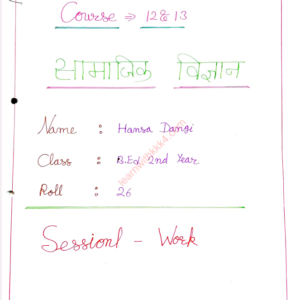 Course ⇒ 12 & 13
सामाजिक विज्ञान
Name : Hansa Dangi
Class : B.Ed 2nd Year
Roll : 26
Sessionl - Work
learnwithkkk4.com